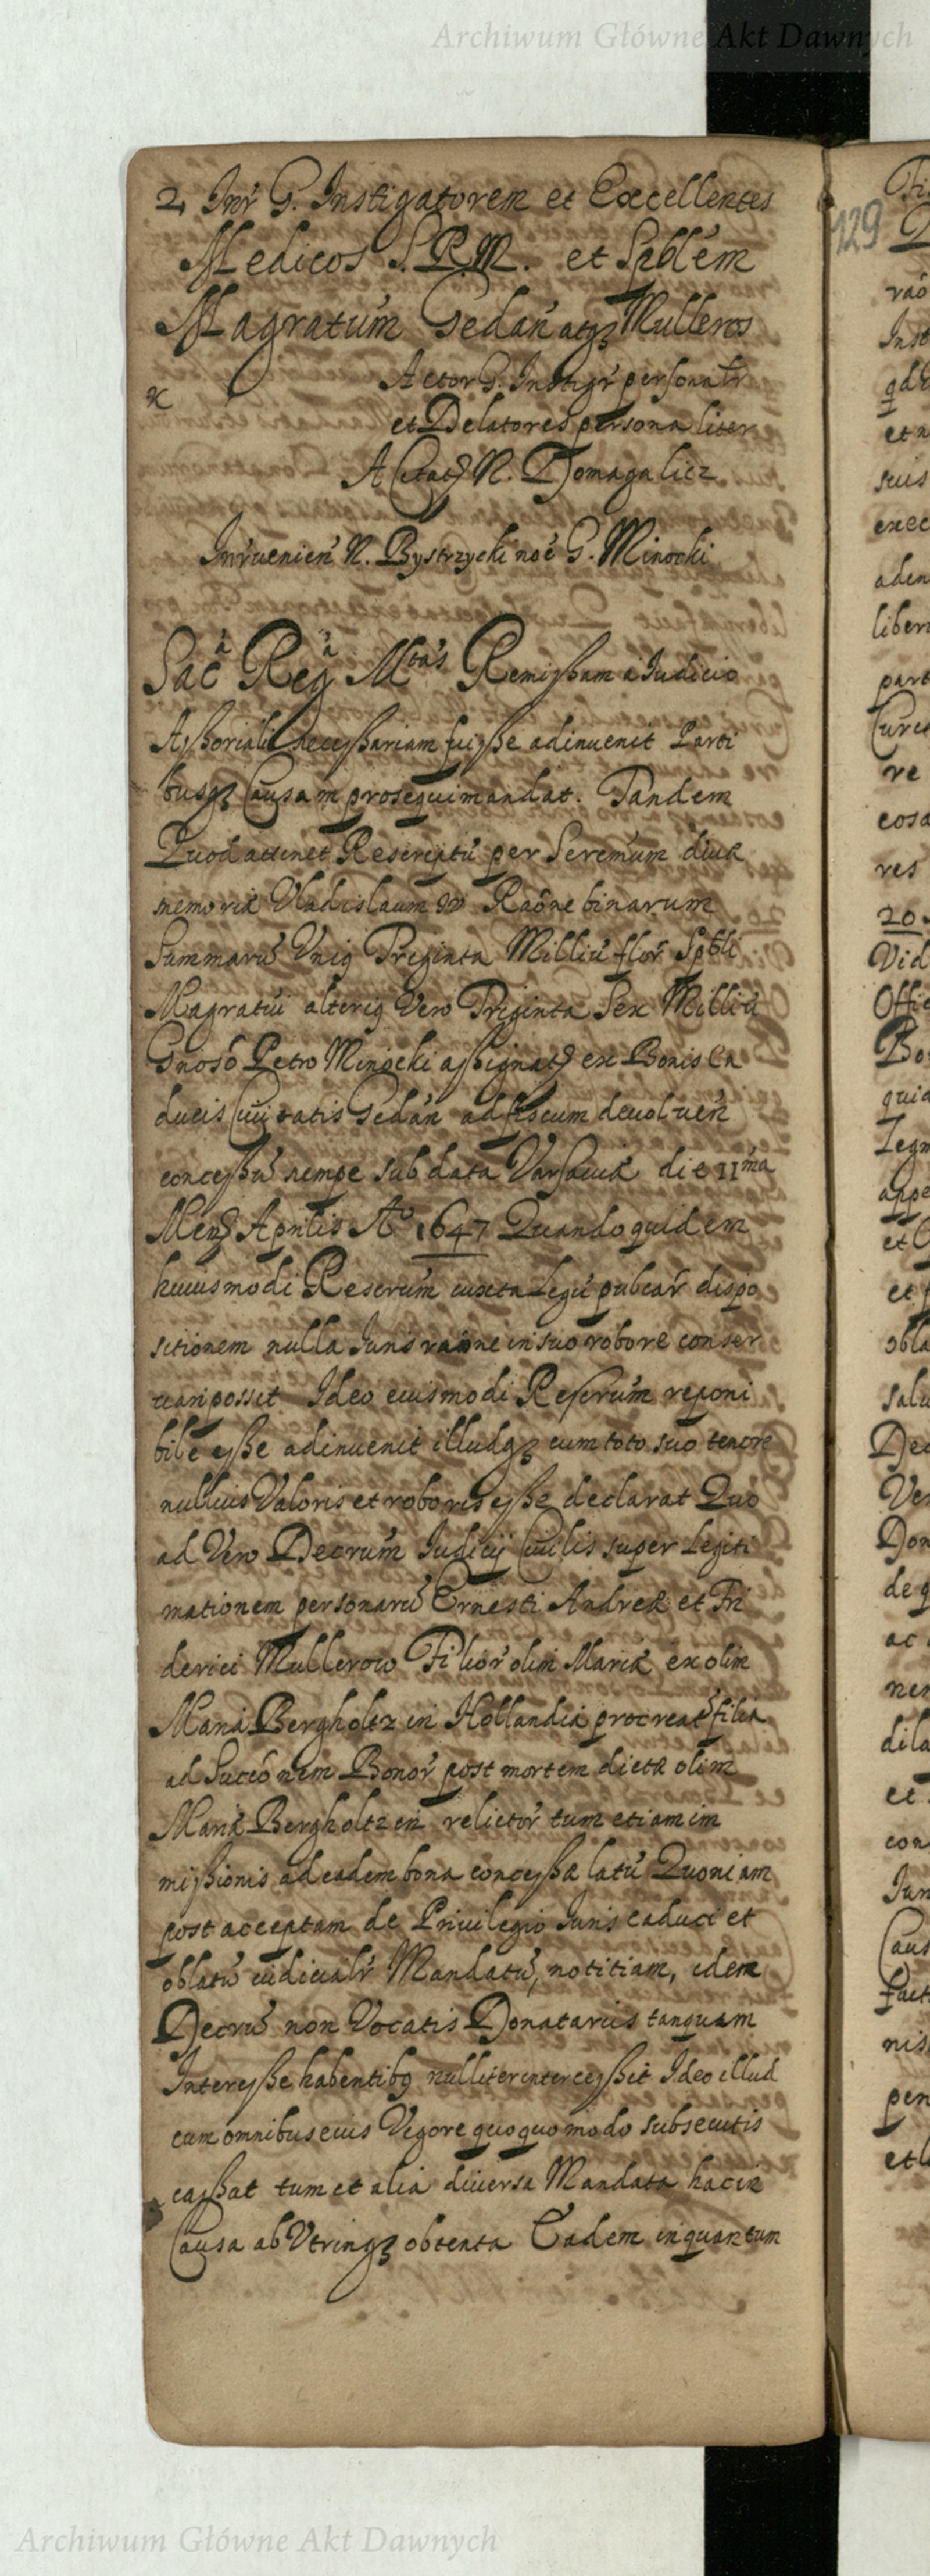 Archiwum Główne Akt Dawnych
2, Inr̃ G. Instigatorem et Excellentes
Medicos S. R. M. et Spblẽm
Magratum̃ Gedañ atqȝ Mulleros
Actor G. Instigr̃ personalr̃
et Delatores personaliter
A Citatȝ N. Domagalicz
Inr̃uenieñ N. Bystrzycki noẽ G. Minocki
129
Sac̃ Reg̃ Mtas Remissam a Iudicio
Assoriali necessariam fuisse adinuenit Parti
busqȝ Causam prosequi mandat. Tandem
Quod attinet Rescriptũ per Seremũm diuæ
memoriæ Vladislaum IV Raõne binarum
Summarũ Vniꝯ Triginta Milliũ flor̃ Spbli
Magratui alteriꝯ Vero Triginta Sex Milliũ
Gnosõ Petro Minocki assignatȝ ex Bonis Ca
ducis Ciuitatis Gedañ ad fiscum deuolueñ
concessũ nempe sub data Varsauiæ die 11ma
Mensȝ Aprilis Ao 1647 Quandoquidem
huiusmodi Rescrũm iuxta Legũ pubcar̃ dispo
sitionem nulla Iuris raõne in suo robore conser
uari possit Ideo eiusmodi Rescrũm reponi
bile esse adinuenit illudqȝ cum toto suo tenore
nullius Valoris et roboris esse declarat Quo
ad Vero Decrũm Iudicij Ciuilis super Legiti
mationem personarũ Ernesti Andreæ et Fri
derici Mullerow Filior̃ olim Mariæ ex olim
Maria Bergholtz in Hollandia procreatȝ filia
ad Sucõnem Bonor̃ post mortem dictæ olim
Mariæ Bergholtz eñ relictor̃ tum etiam im
missionis ad eadem bona concessæ latũ Quoniam
post acceptam de Priuilegio Iuris caduci et
oblatũ iudicialr̃ Mandatũ, notitiam, idem
Decrũ non Vocatis Donatariis tanquam
Interesse habentibꝯ nulliter intercessit Ideo illud
cum omnibus eius Vigore quoquomodo subsecutis
cassat tum et alia diuersa Mandata hac in
Causa ab Vtrinqȝ obtenta Eadem inquantum
Archiwum Główne Akt Dawnych